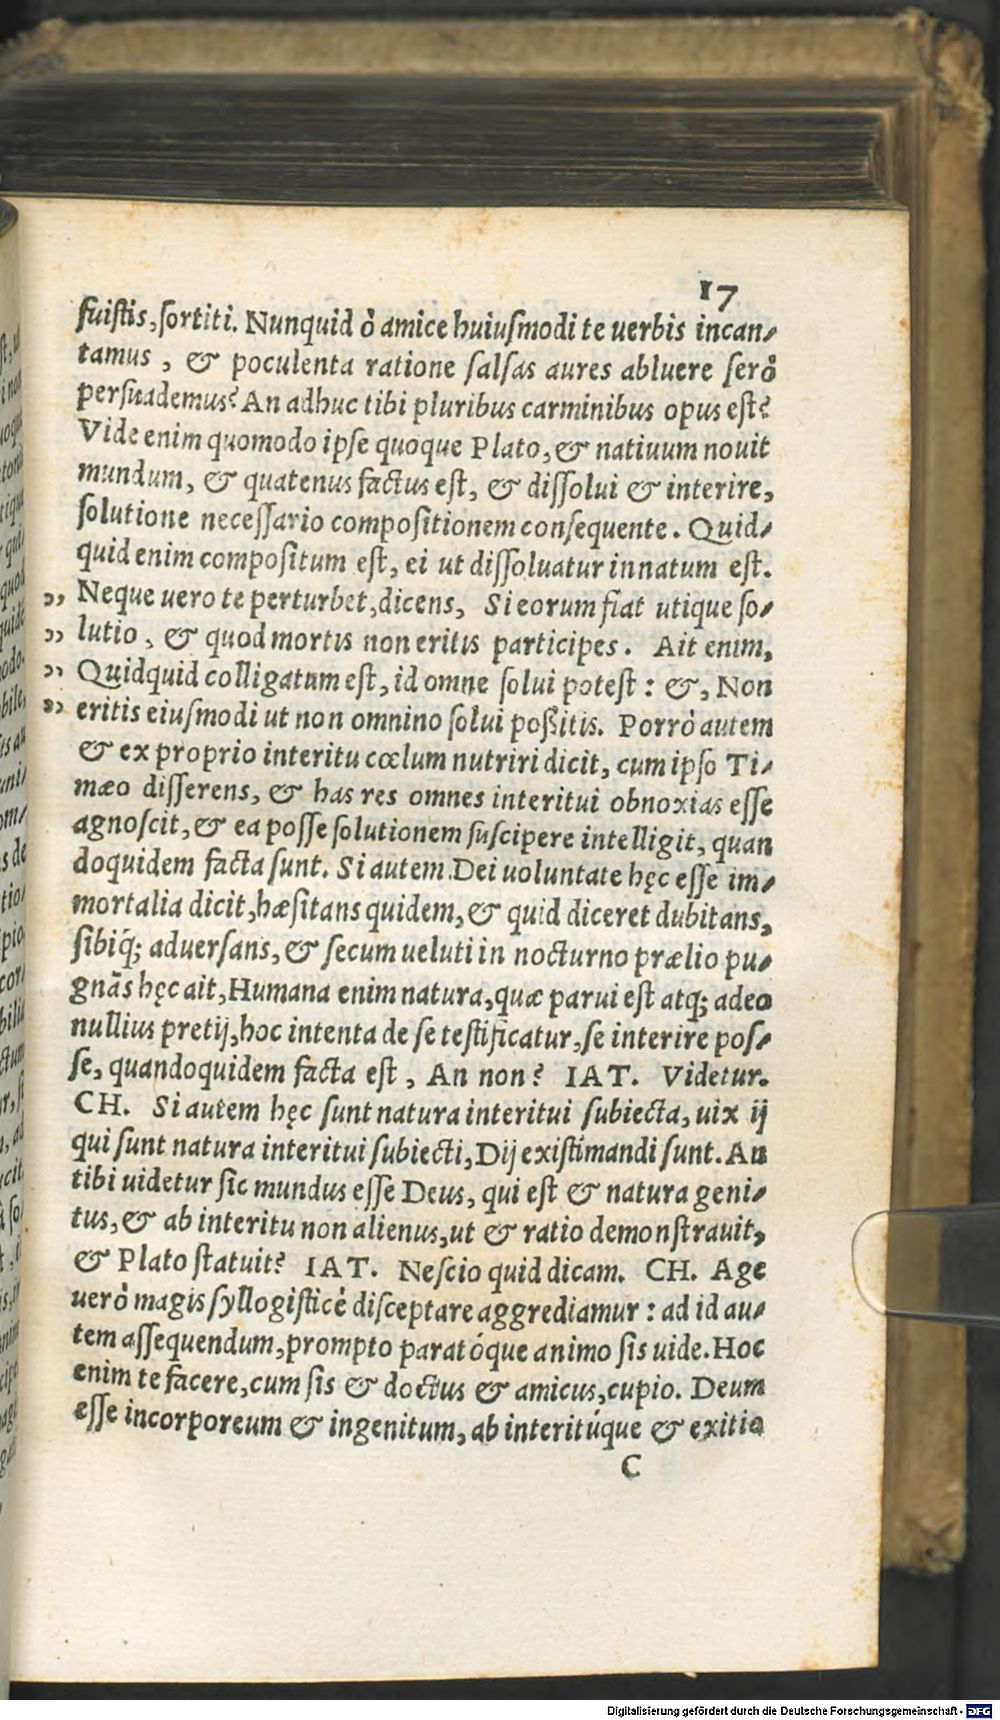 17
fuistis, sortiti. Nunquid ô amice huiusmodi te uerbis incan-
tamus, & poculenta ratione salsas aures abluere serò
persuademus? An adhuc tibi pluribus carminibus opus est?
Vide enim quomodo ipse quoque Plato, & natiuum nouit
mundum, & quatenus factus est, & dissolui & interire,
solutione necessario compositionem consequente. Quid-
quid enim compositum est, ei ut dissoluatur innatum est.
,, Neque uero te perturbet, dicens, Si eorum fiat utique so-
,, lutio, & quod mortis non eritis participes. Ait enim,
,, Quidquid colligatum est, id omne solui potest: &, Non
,, eritis eiusmodi ut non omnino solui poßitis. Porrò autem
& ex proprio interitu cœlum nutriri dicit, cum ipso Ti-
mæo disserens, & has res omnes interitui obnoxias esse
agnoscit, & ea posse solutionem suscipere intelligit, quan
doquidem facta sunt. Si autem Dei uoluntate hęc esse im-
mortalia dicit, hæsitans quidem, & quid diceret dubitans,
sibiq́; aduersans, & secum ueluti in nocturno prælio pu-
gnãs hęc ait, Humana enim natura, quæ parui est atq; adeo
nullius pretij, hoc intenta de se testificatur, se interire pos-
se, quandoquidem facta est, An non? IAT. Videtur.
CH. Si autem hęc sunt natura interitui subiecta, uix ij
qui sunt natura interitui subiecti, Dij existimandi sunt. An
tibi uidetur sic mundus esse Deus, qui est & natura geni-
tus, & ab interitu non alienus, ut & ratio demonstrauit,
& Plato statuit? IAT. Nescio quid dicam. CH. Age
uerò magis syllogisticè disceptare aggrediamur: ad id au-
tem assequendum, prompto paratóque animo sis uide. Hoc
enim te facere, cum sis & doctus & amicus, cupio. Deum
esse incorporeum & ingenitum, ab interitúque & exitio
C
Digitalisierung gefördert durch die Deutsche Forschungsgemeinschaft - DFG